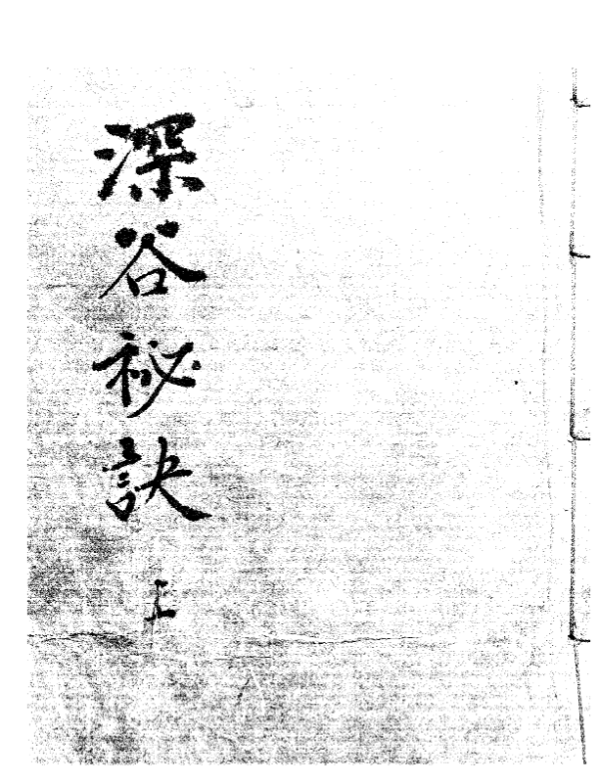 深谷祕訣
上